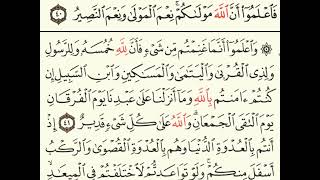 فَٱعْلَمُوٓا۟ أَنَّ ٱللَّهَ مَوْلَىٰكُمْ ۚ نِعْمَ ٱلْمَوْلَىٰ وَنِعْمَ ٱلنَّصِيرُ ٤٠
۞ وَٱعْلَمُوٓا۟ أَنَّمَا غَنِمْتُم مِّن شَىْءٍ فَأَنَّ لِلَّهِ خُمُسَهُۥ وَلِلرَّسُولِ
وَلِذِى ٱلْقُرْبَىٰ وَٱلْيَتَٰمَىٰ وَٱلْمَسَٰكِينِ وَٱبْنِ ٱلسَّبِيلِ إِن
كُنتُمْ ءَامَنتُم بِٱللَّهِ وَمَآ أَنزَلْنَا عَلَىٰ عَبْدِنَا يَوْمَ ٱلْفُرْقَانِ
يَوْمَ ٱلْتَقَى ٱلْجَمْعَانِ ۗ وَٱللَّهُ عَلَىٰ كُلِّ شَىْءٍ قَدِيرٌ ٤١ إِذْ
أَنتُم بِٱلْعُدْوَةِ ٱلدُّنْيَا وَهُم بِٱلْعُدْوَةِ ٱلْقُصْوَىٰ وَٱلرَّكْبُ
أَسْفَلَ مِنكُمْ ۚ وَلَوْ تَوَاعَدتُّمْ لَٱخْتَلَفْتُمْ فِى ٱلْمِيعَٰدِ ۙ